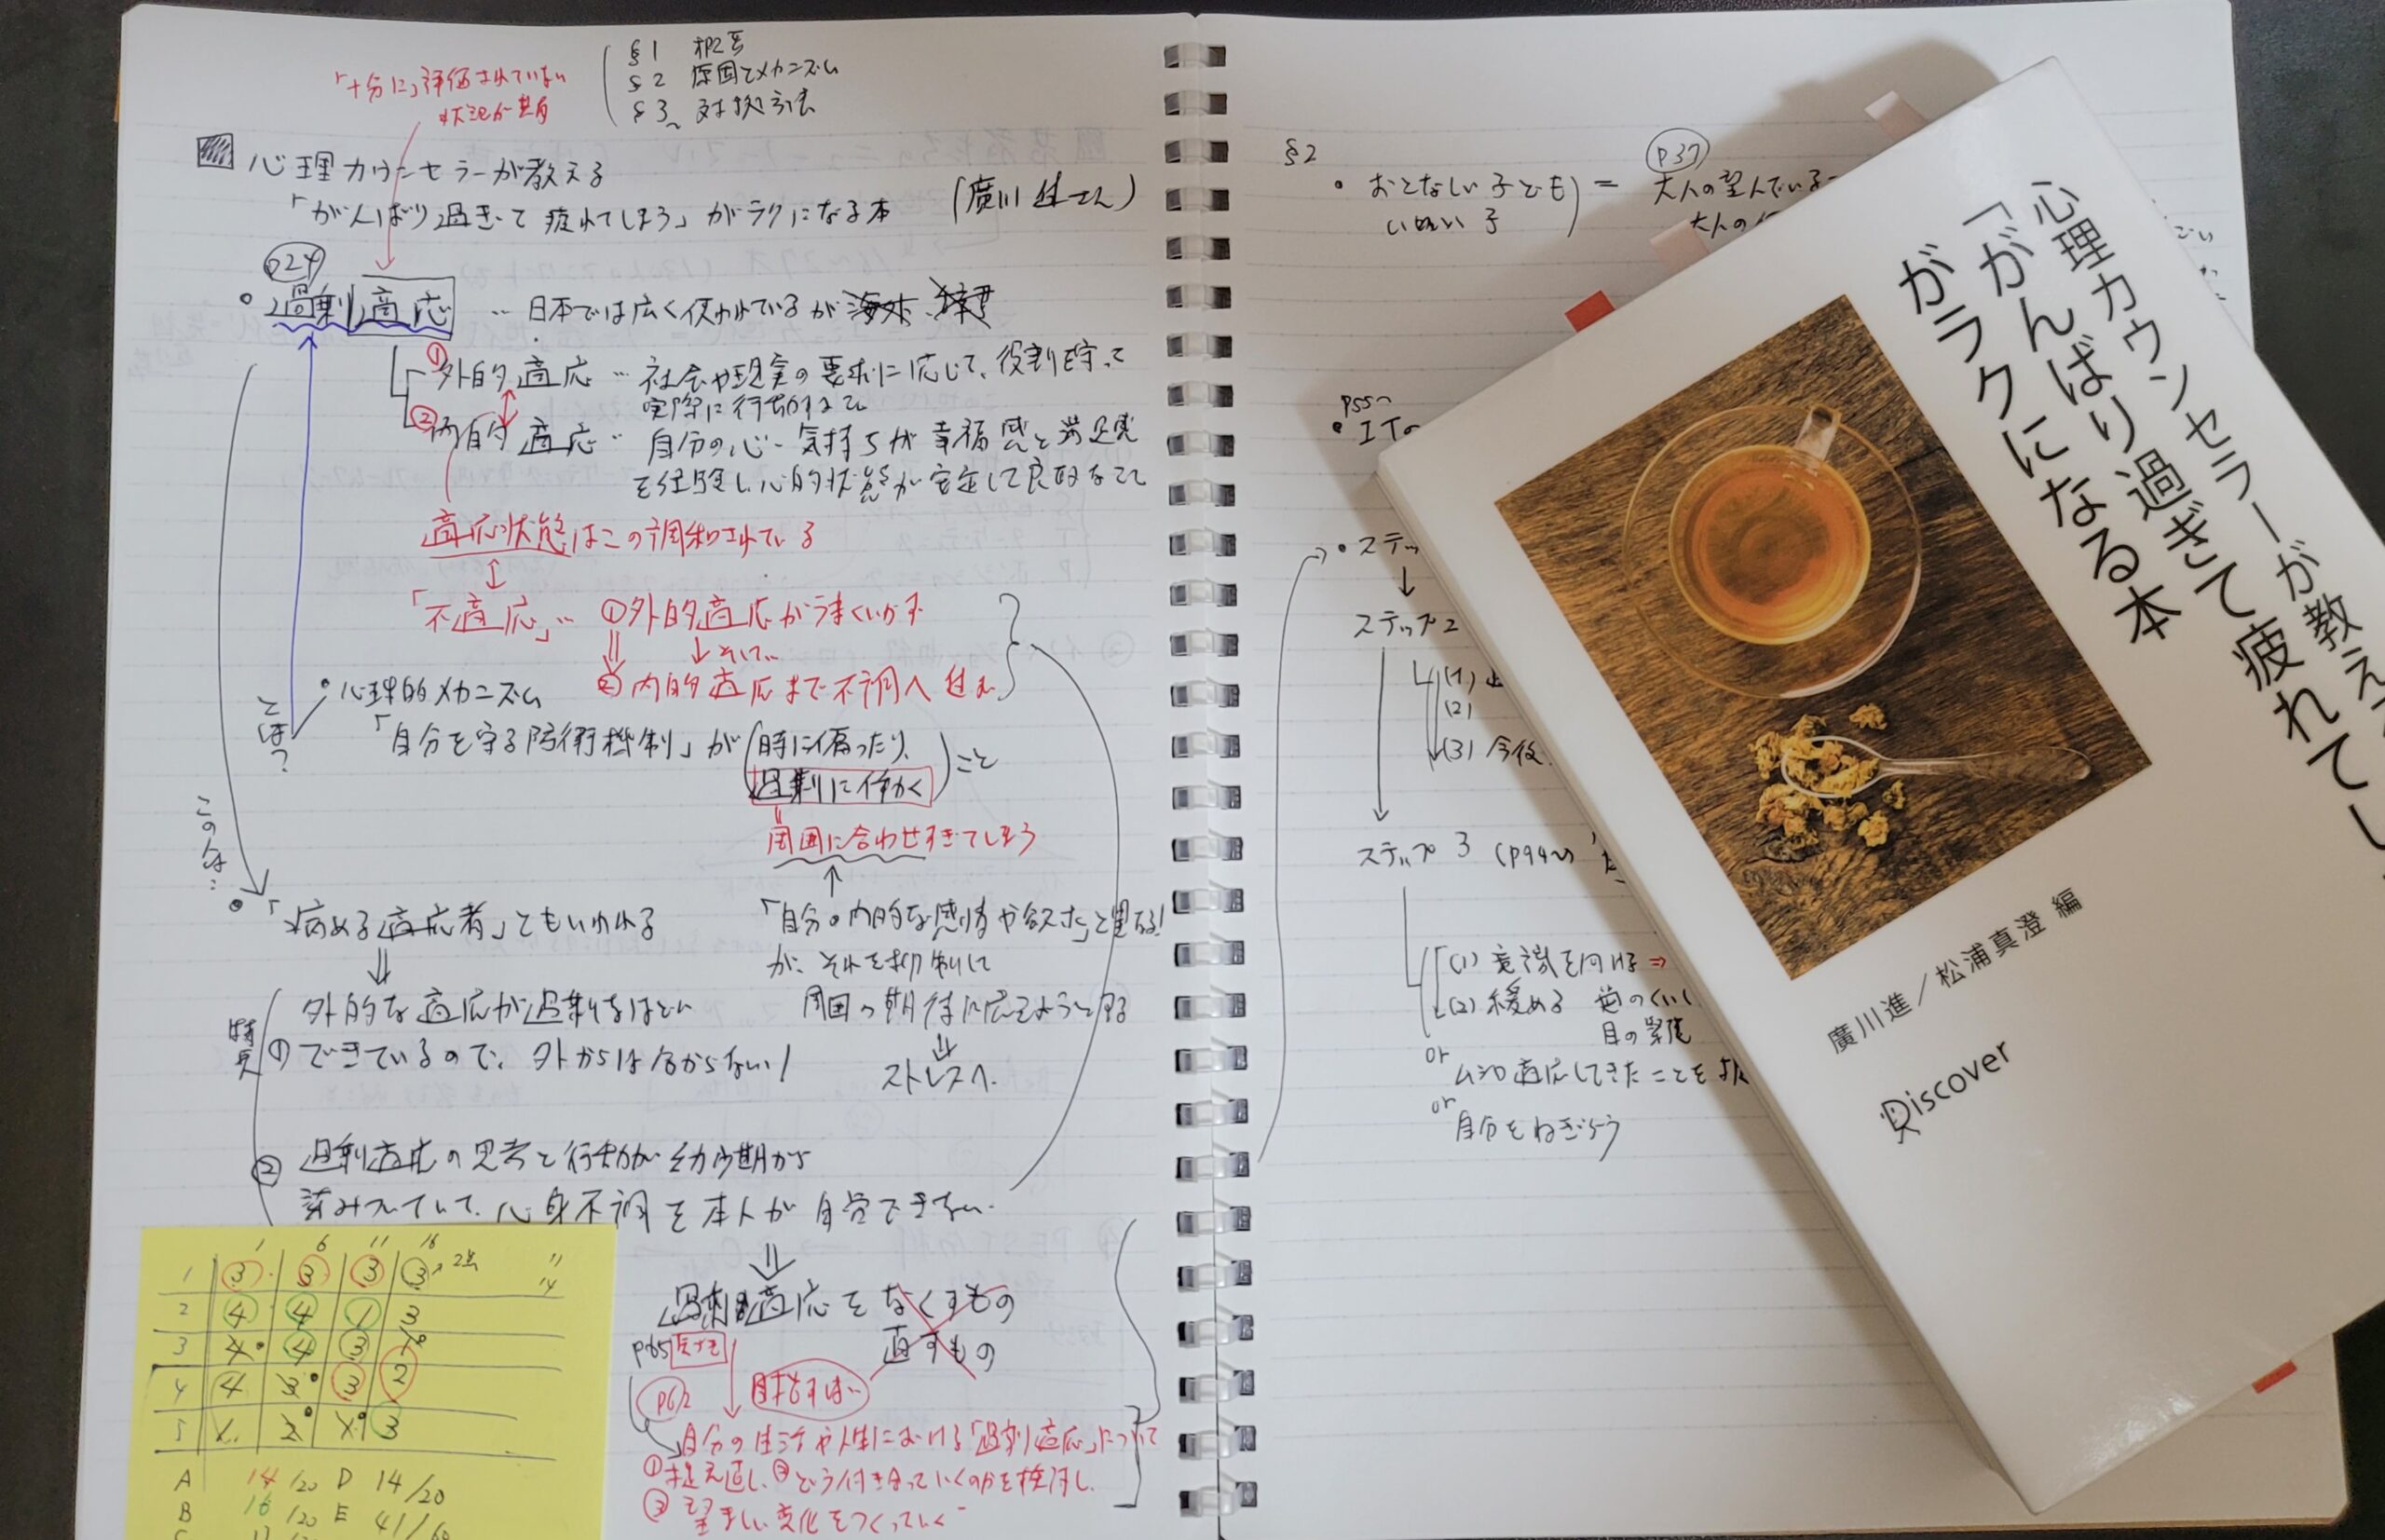 「十分に」評価されていない
状況が共有
§1 概要
§2 原因とメカニズム
§3 対処方法
心理カウンセラーが教える
「がんばり過ぎて疲れてしまう」がラクになる本
(廣川進さん)
p24
過剰適応 … 日本では広く使われているが
① 外的適応 … 社会や現実の要求に応じて、役割を守って
実際に行動すること
② 内的適応 … 自分の心・気持ちが幸福感と満足感
を経験し、心的状態が安定して良好なこと
適応状態はこの調和されている
「不適応」… ①外的適応がうまくいかず
↓ そして…
② 内的適応まで不調へ進む
とは?
・心理的メカニズム
「自分を守る防衛機制」が(時に偏ったり、
過剰に働く)こと
周囲に合わせすぎてしまう
この人は…
・「病める適応者」ともいわれる
「自分の内的な感情や欲求」と異なる!
が、それを抑制して
周囲の期待に応えようとする
ストレスへ
特徴
① 外的な適応が過剰なほどに
できているので、外からは分からない!
② 過剰適応の思考と行動が幼少期から
染みついていて、心身不調を本人が自覚できない
過剰適応をなくすもの
直すもの
p65
p62
目指すは…
自分の生活や人生における「過剰適応」について
①捉え直し、②どう付き合っていくのかを検討し、
③望ましい変化をつくっていく
1 6 11 16
1 3 3 3 3 2点
11
14
2 4 4 1 3
3 4 4 3
4 4 3 3 2
5 2 3
A 14/20 D 14/20
B 16/20 E 41/60
§2
・おとなしい子ども
いい子
p37
= 大人の望んでいる
大人の
p55〜
・IT
・ステッ
↓
ステップ2
(1)
(2)
(3) 今後
ステップ3 (p94〜)
(1) 意識を向ける ⇒
(2) 緩める 歯のくいし
目の緊張
or
ムシロ適応してきたことを
or
自分をねぎらう
心理カウンセラーが教え
「がんばり過ぎて疲れてし
がラクになる本
廣川進/松浦真澄 編
Discover